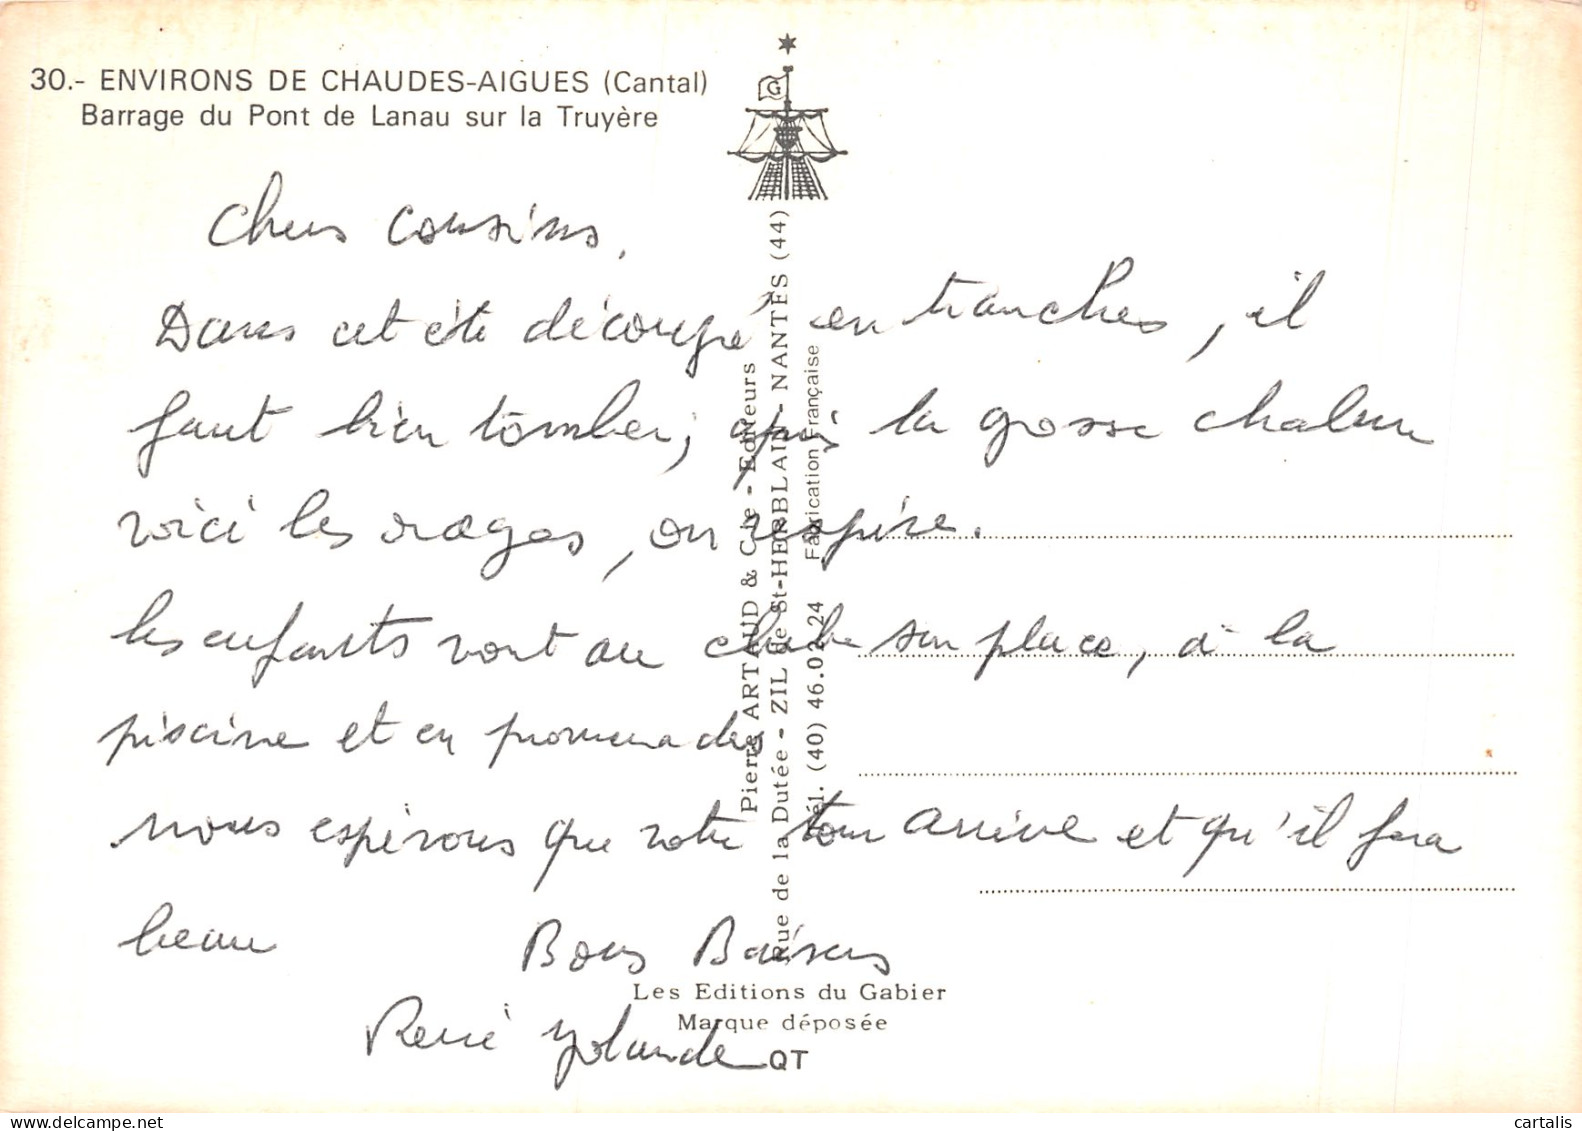 30.- ENVIRONS DE CHAUDES-AIGUES (Cantal)
Barrage du Pont de Lanau sur la Truyère
G
Chers cousins,
Dans cet été découpé en tranches, il
faut bien tomber ; après la grosse chaleur
voici les orages, on respire.
les enfants vont au club sur place, à la
piscine et en promenades
nous espérons que votre tour arrive et qu'il fera
beau Bons Baisers
René Yolande
Pierre ARTAUD & Cie - Editeurs
Rue de la Dutée - ZIL de St-HERBLAIN - NANTES (44)
Tél. (40) 46.02.24 Fabrication Française
Les Editions du Gabier
Marque déposée
QT
cartalis
www.delcampe.net